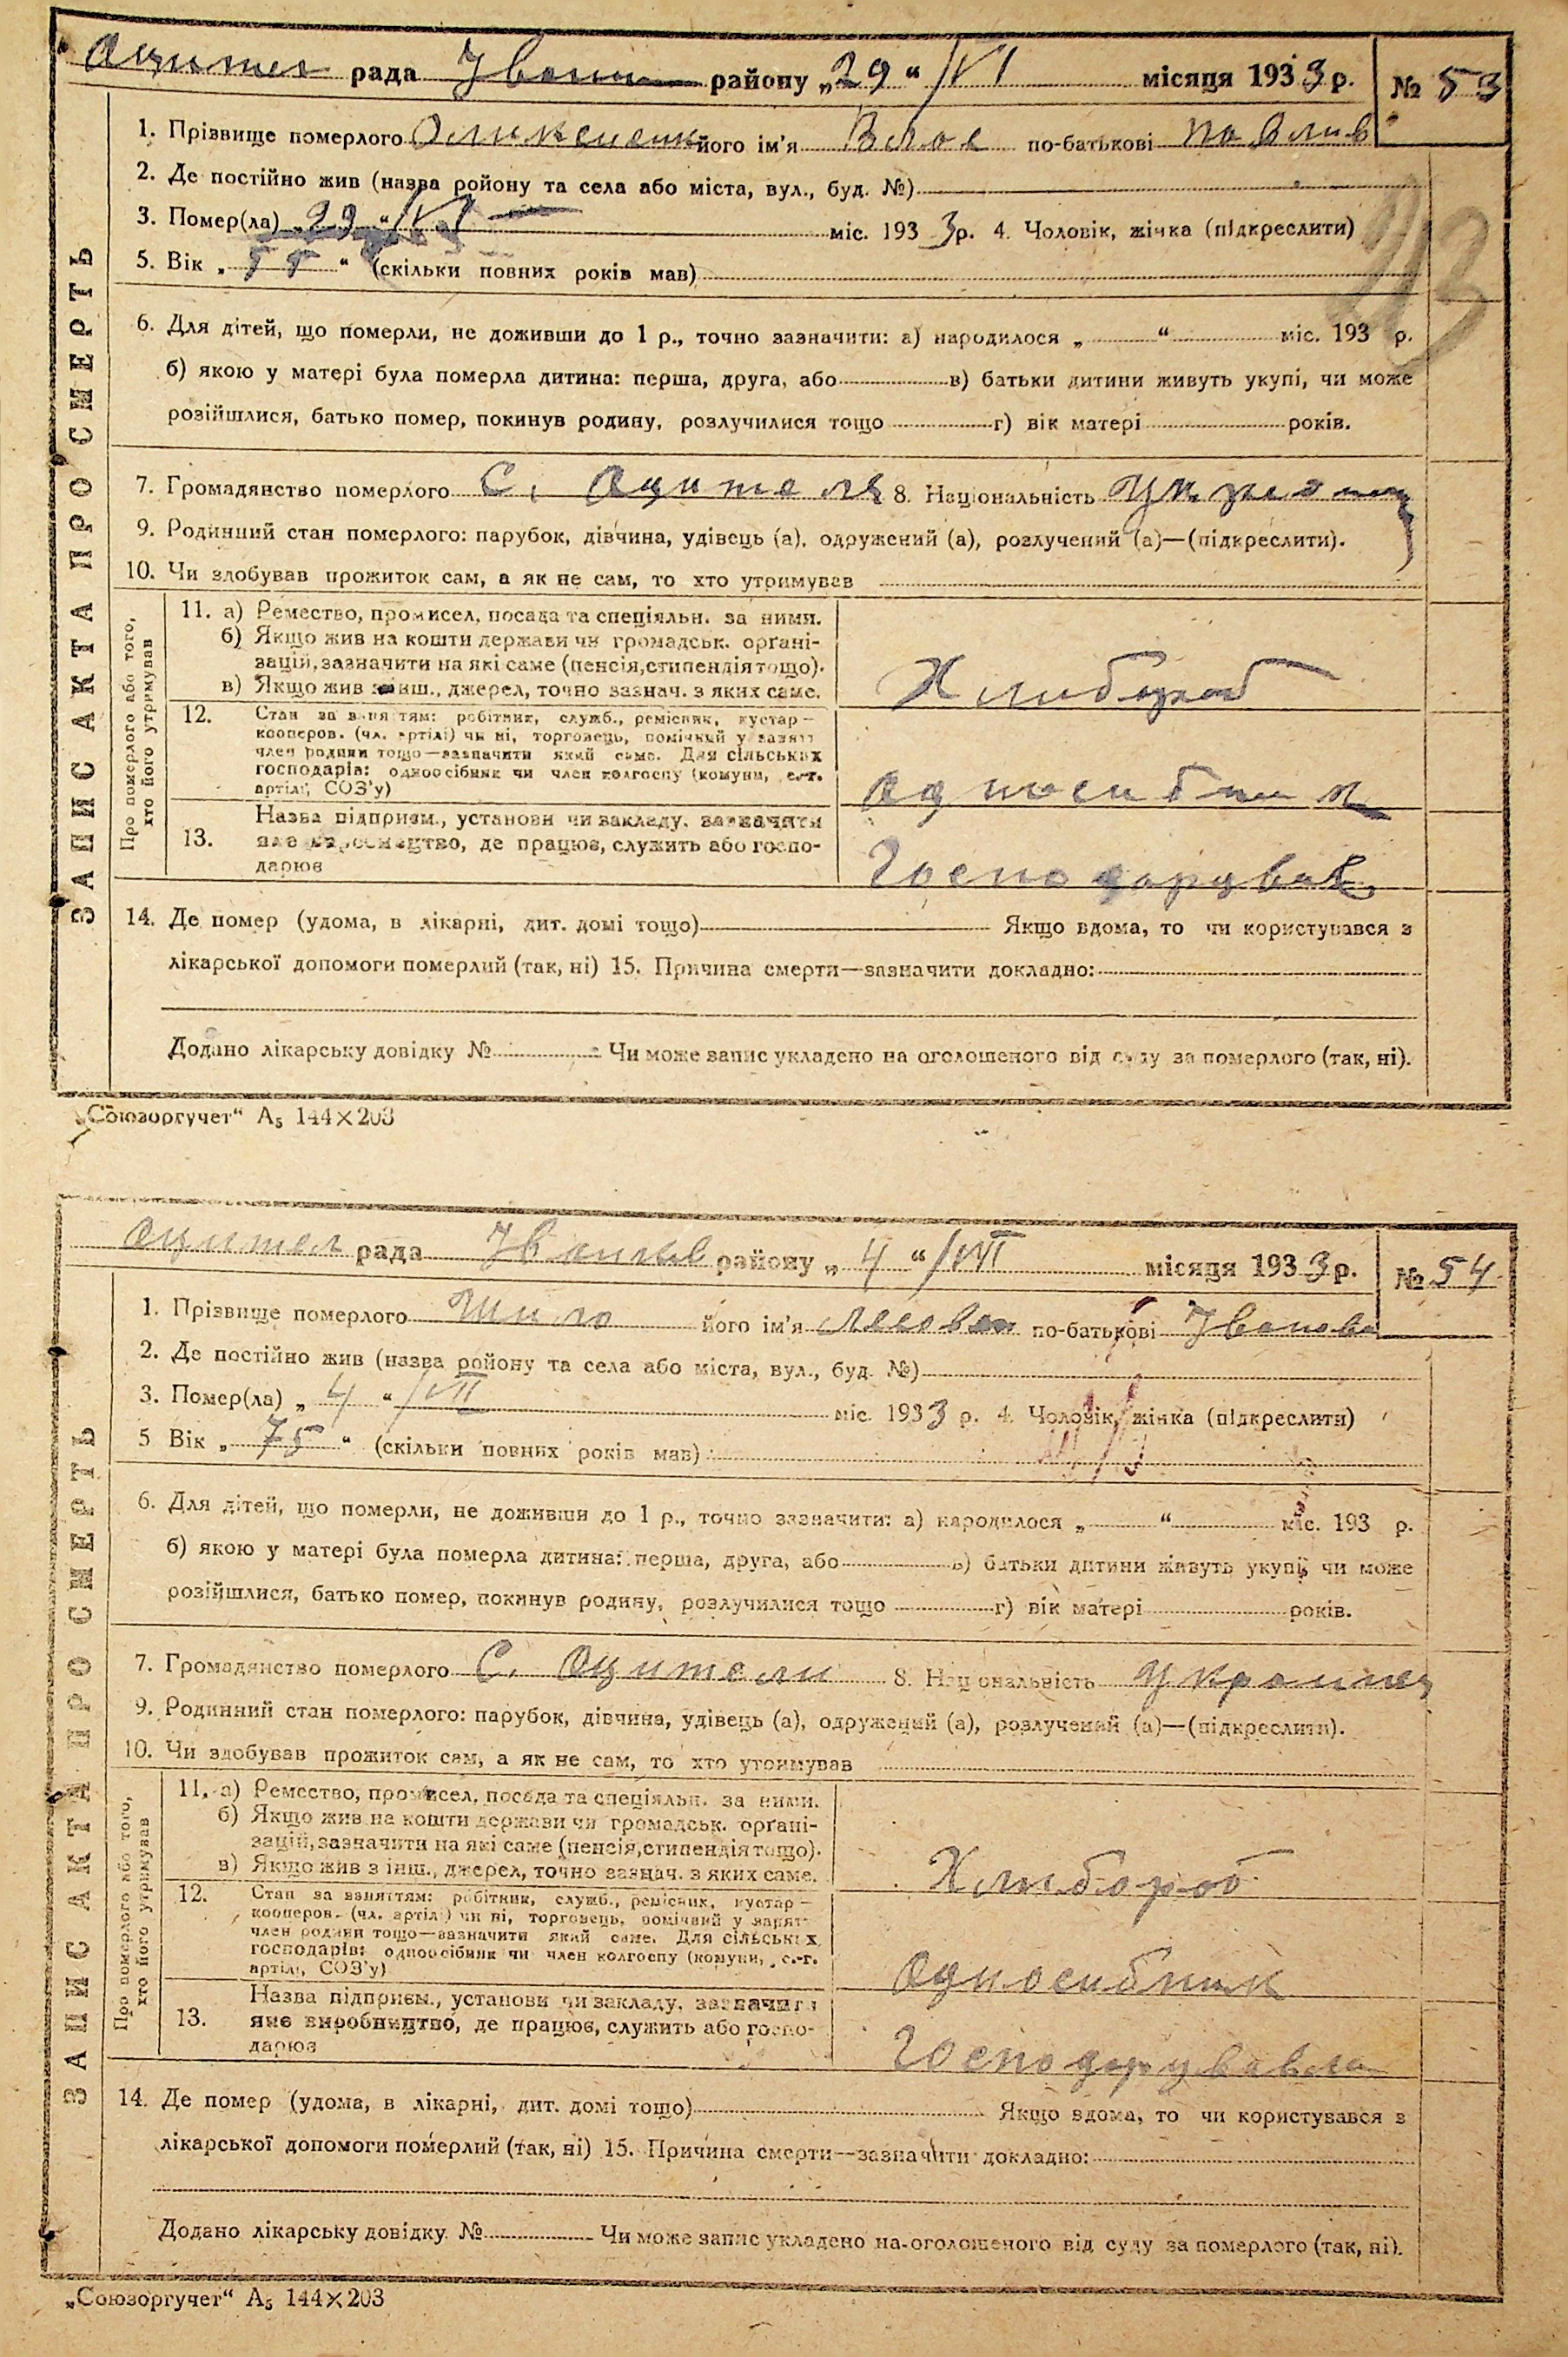 Оцител рада Іванк району „29“/VI місяця 1933 р. № 53
ЗАПИС АКТА ПРО СМЕРТЬ
1. Прізвище померлого його ім'я Влас по-батькові Павлив
2. Де постійно жив (назва ройону та села або міста, вул., буд. №)
3. Помер(ла) „29“/VI міс. 1933 р. 4. Чоловік, жінка (підкреслити)
5. Вік „55“ (скільки повних років мав)
6. Для дітей, що померли, не доживши до 1 р., точно зазначити: а) народилося „ “ міс. 193 р.
б) якою у матері була померла дитина: перша, друга, або в) батьки дитини живуть укупі, чи може
розійшлися, батько помер, покинув родину, розлучилися тощо г) вік матері років.
7. Громадянство померлого С. Оцителя 8. Національність Українец
9. Родинний стан померлого: парубок, дівчина, удівець (а), одружений (а), розлучений (а)—(підкреслити).
10. Чи здобував прожиток сам, а як не сам, то хто утримував
Про померлого або того, хто його утримував
11. а) Ремество, промисел, посада та спеціяльн. за ними.
б) Якщо жив на кошти держави чи громадськ. орґані-
зацій, зазначити на які саме (пенсія, стипендія тощо).
в) Якщо жив з інш., джерел, точно зазнач. з яких саме.
Хлибороб
12. Стан за заняттям: робітник, служб., ремісник, кустар—
кооперов. (чл. артілі) чи ні, торговець, помічний у занят
член родини тощо—зазначити який саме. Для сільських
господарів: одноосібник чи член колгоспу (комуни, с.-г.
артілі, СОЗ'у)
Односибник
13. Назва підприєм., установи чи закладу, зазначити
яке виробництво, де працює, служить або госпо-
дарює
Господарував
14. Де помер (удома, в лікарні, дит. домі тощо) Якщо вдома, то чи користувався з
лікарської допомоги померлий (так, ні) 15. Причина смерти—зазначити докладно:
Додано лікарську довідку № Чи може запис укладено на оголошеного від суду за померлого (так, ні).
„Союзоргучет“ А₅ 144×203
Оцител рада Іванків району „4“/VII місяця 1933 р. № 54
ЗАПИС АКТА ПРО СМЕРТЬ
1. Прізвище померлого Шило його ім'я по-батькові Іванова
2. Де постійно жив (назва ройону та села або міста, вул., буд. №)
3. Помер(ла) „4“/VII міс. 1933 р. 4. Чоловік, жінка (підкреслити)
5 Вік „75“ (скільки повних років мав)
6. Для дітей, що померли, не доживши до 1 р., точно зазначити: а) народилося „ “ міс. 193 р.
б) якою у матері була померла дитина: перша, друга, або в) батьки дитини живуть укупі, чи може
розійшлися, батько помер, покинув родину, розлучилися тощо г) вік матері років.
7. Громадянство померлого С. Оцители 8. Національність Украинец
9. Родинний стан померлого: парубок, дівчина, удівець (а), одружений (а), розлучений (а)—(підкреслити).
10. Чи здобував прожиток сам, а як не сам, то хто утримував
Про померлого або того, хто його утримував
11. а) Ремество, промисел, посада та спеціяльн. за ними.
б) Якщо жив на кошти держави чи громадськ. орґані-
зацій, зазначити на які саме (пенсія, стипендія тощо).
в) Якщо жив з інш., джерел, точно зазнач. з яких саме.
Хлибороб
12. Стан за заняттям: робітник, служб., ремісник, кустар—
кооперов. (чл. артілі) чи ні, торговець, помічний у занят
член родини тощо—зазначити який саме. Для сільських
господарів: одноосібник чи член колгоспу (комуни, с.-г.
артілі, СОЗ'у)
Односибник
13. Назва підприєм., установи чи закладу, зазначити
яке виробництво, де працює, служить або госпо-
дарює
Господарувавла
14. Де помер (удома, в лікарні, дит. домі тощо) Якщо вдома, то чи користувався з
лікарської допомоги померлий (так, ні) 15. Причина смерти—зазначити докладно:
Додано лікарську довідку № Чи може запис укладено на оголошеного від суду за померлого (так, ні).
„Союзоргучет“ А₅ 144×203